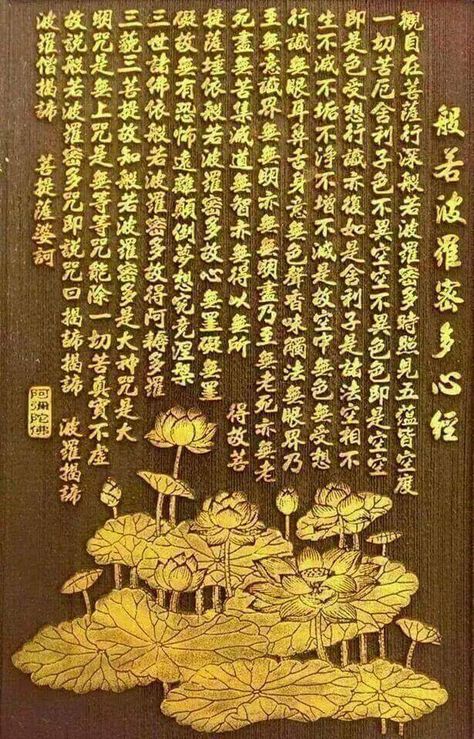 般若波羅密多心經
觀自在菩薩行深般若波羅密多時照見五蘊皆空度
一切苦厄舍利子色不異空空不異色色即是空空
即是色受想行識亦復如是舍利子是諸法空相不
生不滅不垢不淨不增不減是故空中無色無受想
行識無眼耳鼻舌身意無色聲香味觸法無眼界乃
至無意識界無無明亦無無明盡乃至無老死亦無老
死盡無苦集滅道無智亦無得以無所 得故菩
提薩埵依般若波羅密多故心無罣礙無罣
礙故無有恐怖遠離顛倒夢想究竟涅槃
三世諸佛依般若波羅密多故得阿耨多羅
三藐三菩提故知般若波羅密多是大神咒是大
明咒是無上咒是無等等咒能除一切苦真實不虛
故說般若波羅密多咒即說咒曰揭諦揭諦 波羅揭諦
波羅僧揭諦 菩提薩婆訶
阿彌陀佛